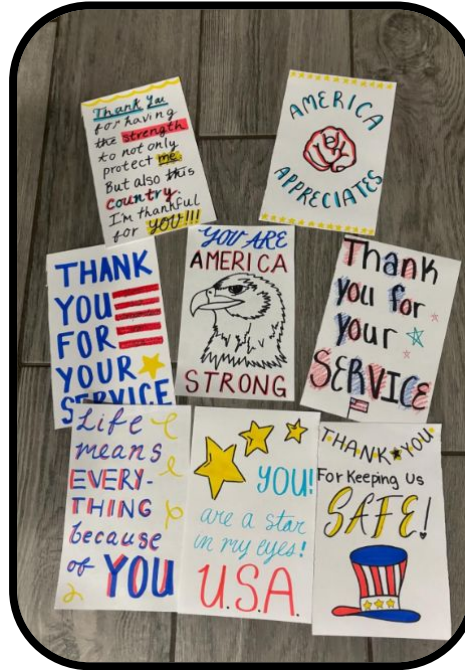 Thank You
for having
the strength
to not only
protect me
But also this
country.
I'm thankful
for YOU!!!
AMERICA
APPRECIATES
YOU ARE
AMERICA
STRONG
THANK
YOU
FOR
YOUR
SERVICE
Thank
you for
your
SERVICE
Life
means
EVERY-
THING
because
of YOU
YOU!
are a star
in my eyes!
U.S.A.
THANK YOU
For Keeping Us
SAFE!